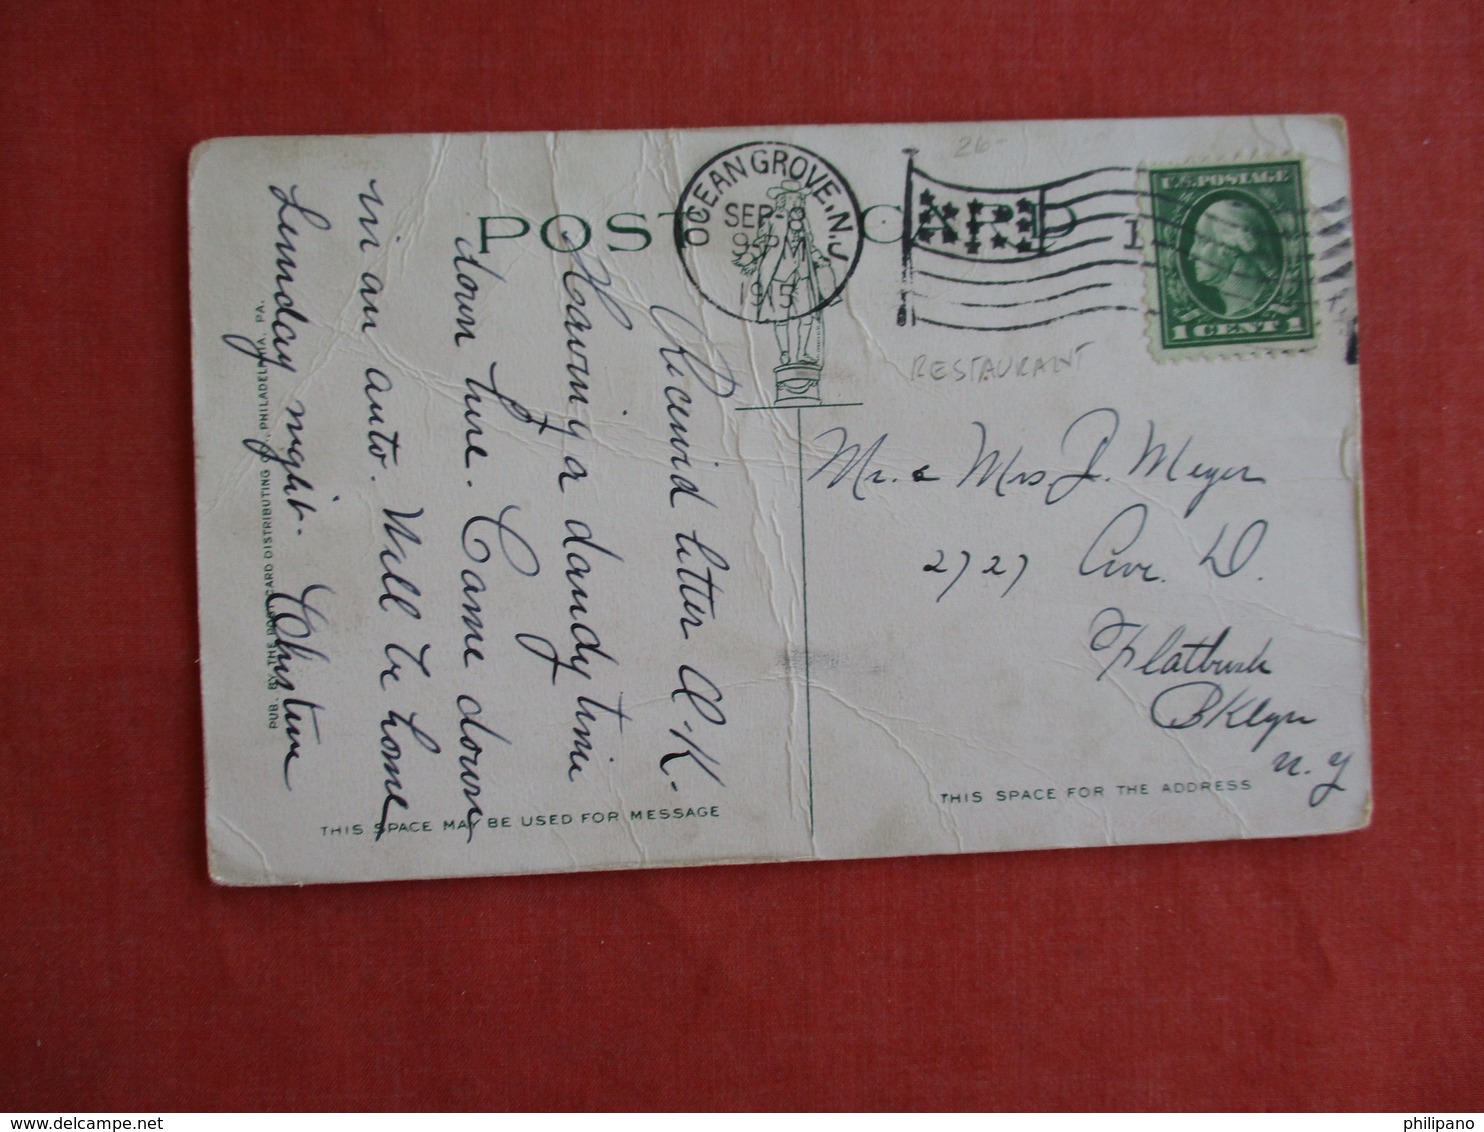 POST CARD
OCEAN GROVE, N.J.
SEP-8
9 P
1915
1
26-
U.S. POSTAGE
1 CENT 1
RESTAURANT
Received letter O.K.
Having a dandy time
down here. Came down
in an auto. Will be home
Sunday night. Christine
Mr. & Mrs J. Meyer
2727 Ave. D.
Flatbush
BKlyn
N. Y
THIS SPACE MAY BE USED FOR MESSAGE
THIS SPACE FOR THE ADDRESS
PUB. BY THE POST CARD DISTRIBUTING CO., PHILADELPHIA, PA.
philipano